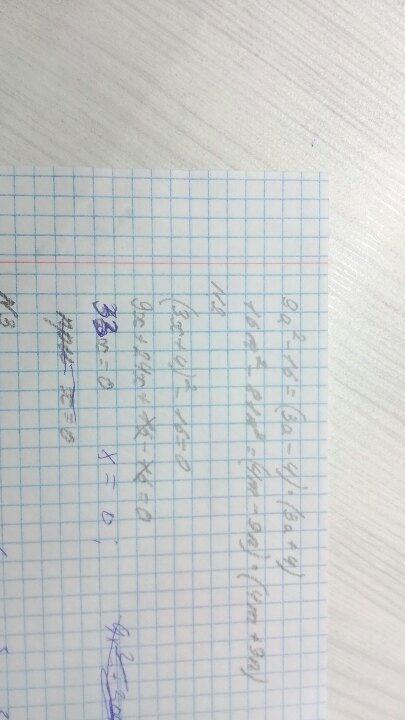 9a² - 16 = (3a - 4) · (3a + 4)
16m² - 81n² = (4m - 9n) · (4m + 9n)
№2
(3x + 4)² - 16 = 0
9x + 24x + 16 - 16 = 0
33x = 0 x = 0;
x = 0
№3